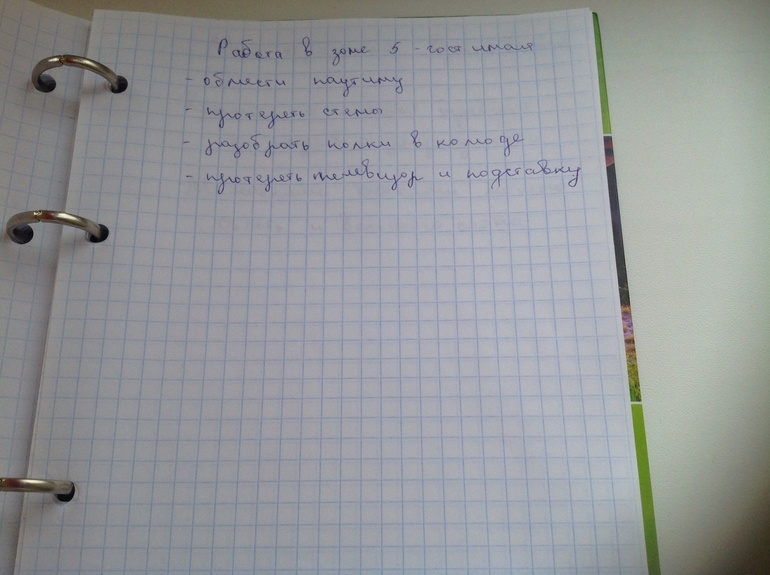 Работа в зоне 5 - гостиная
- обмести паутину
- протереть стены
- разобрать полки в комоде
- протереть телевизор и подставку